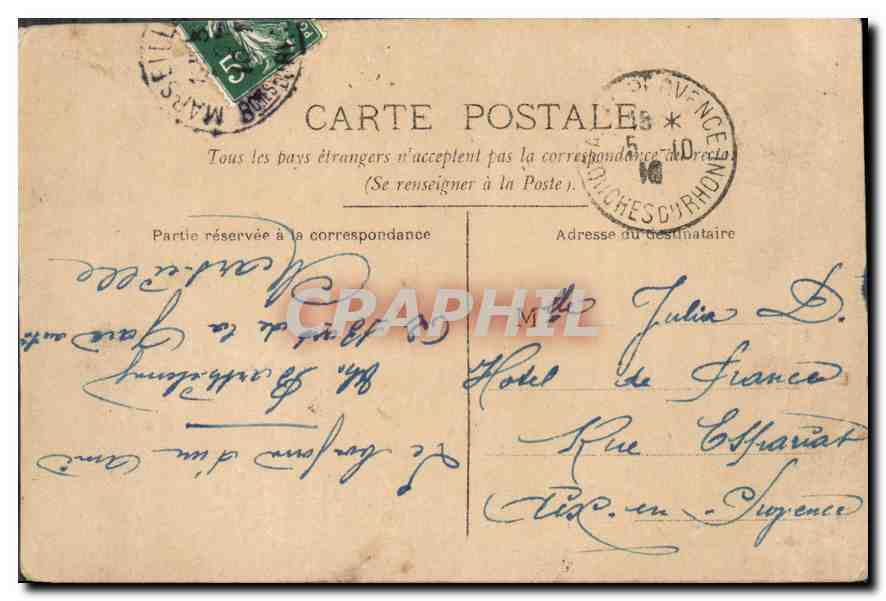 MARSEILLE
5
CARTE POSTALE
Tous les pays étrangers n'acceptent pas la correspondance au recto.
(Se renseigner à la Poste).
PROVENCE
5 10
BOUCHES DU RHONE
Partie réservée à la correspondance
Adresse du destinataire
CRAPHIL
Le bonjour d'un ami
Th. Barthélemy
de la Gare
Marseille
Mlle Julia D.
Hotel de France
Rue Espariat
Aix-en-Provence